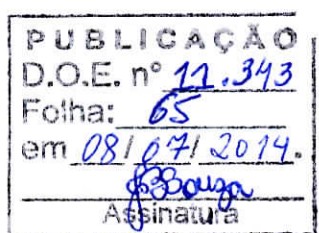 PUBLICAÇÃO
D.O.E. nº 11.343
Folha: 65
em 08/07/2014.
Assinatura